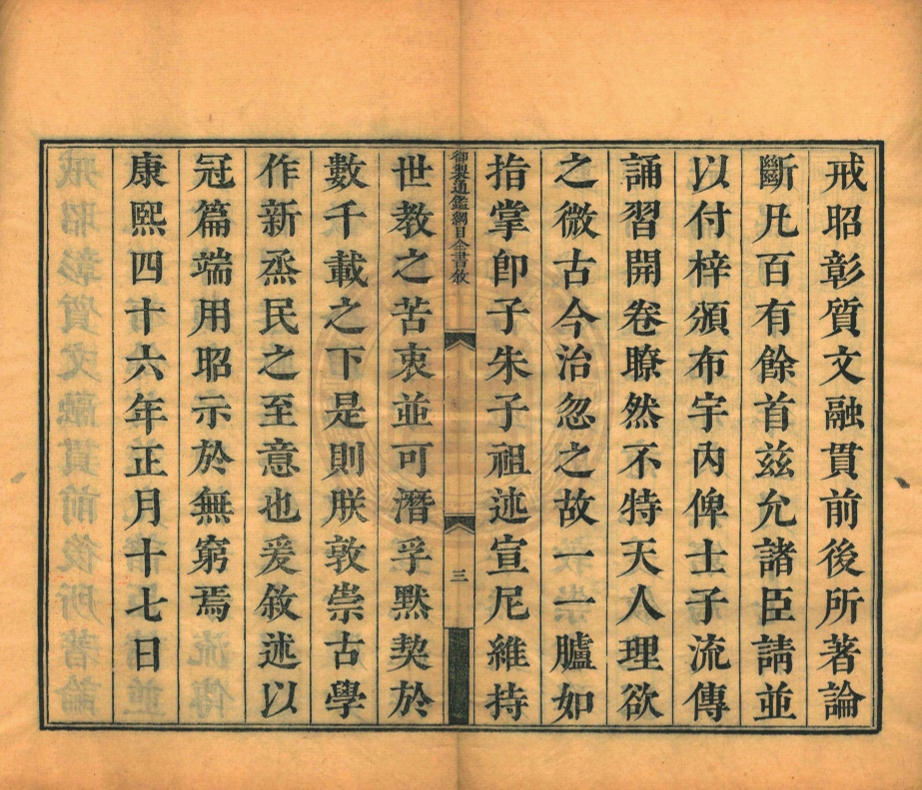 戒昭彰質文融貫前後所著論
斷凡百有餘首茲允諸臣請並
以付梓頒布宇內俾士子流傳
誦習開卷瞭然不特天人理欲
之微古今治忽之故一一臚如
指掌即子朱子祖述宣尼維持
御製通鑑綱目全書敘
三
世教之苦衷並可潛孚默契於
數千載之下是則朕敦崇古學
作新烝民之至意也爰敘述以
冠篇端用昭示於無窮焉
康熙四十六年正月十七日